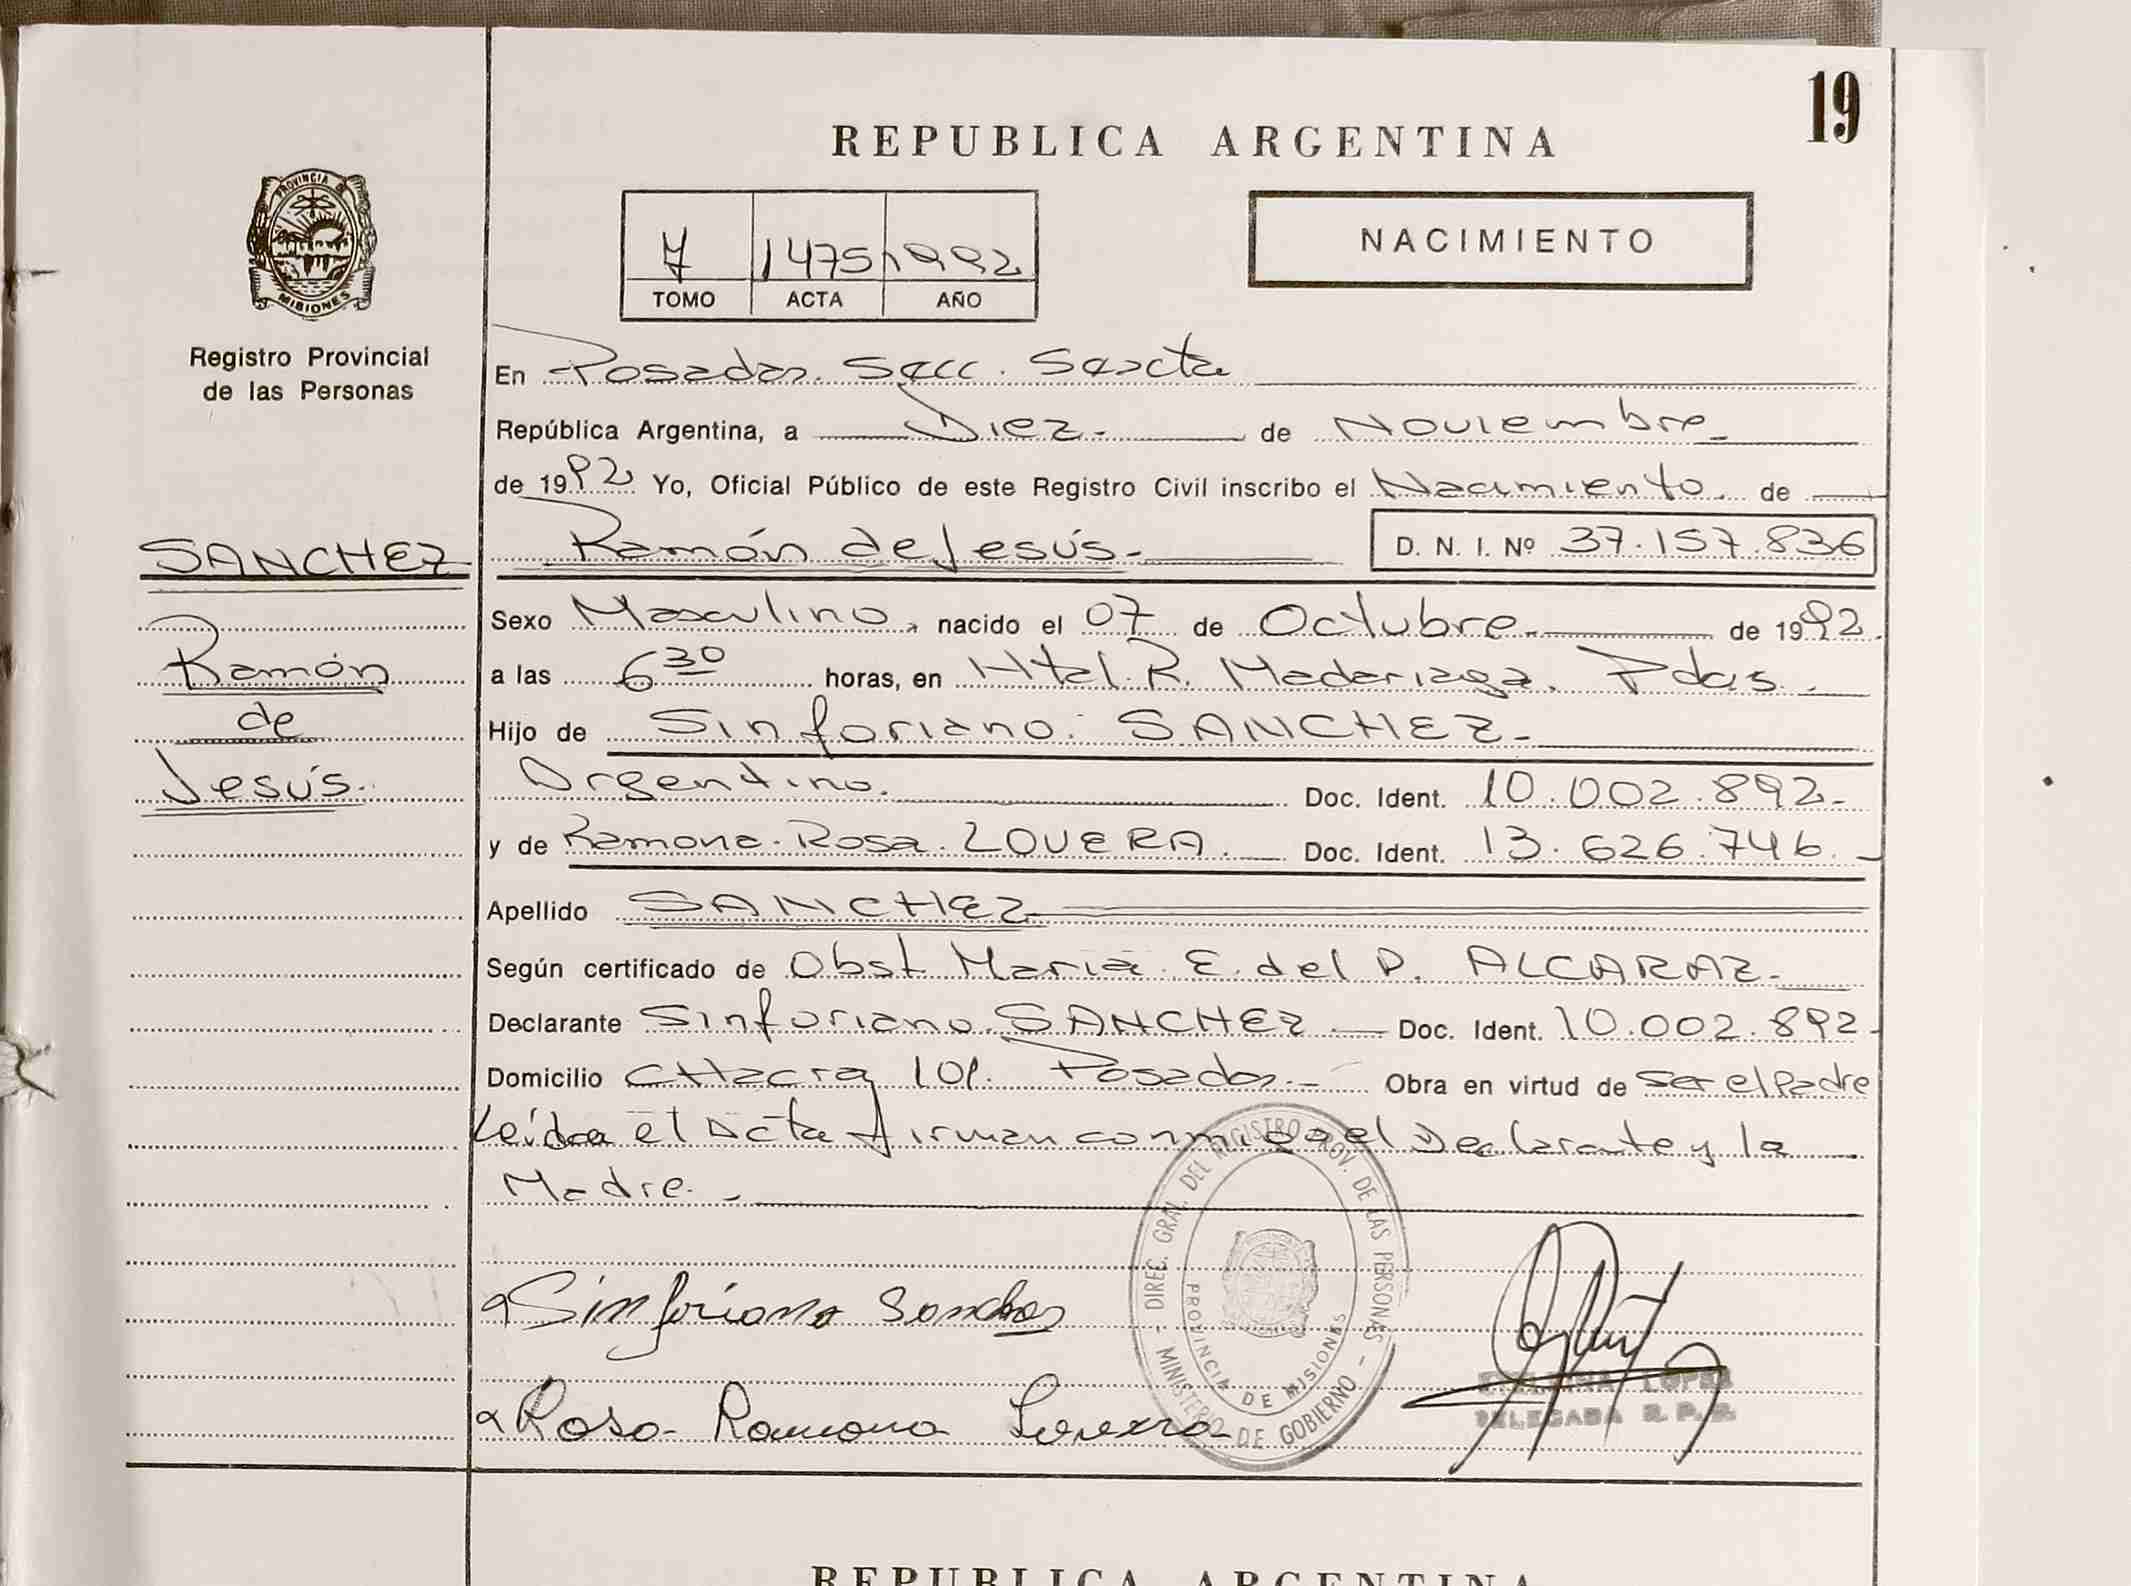 19
REPUBLICA ARGENTINA
PROVINCIA DE
MISIONES
Registro Provincial
de las Personas
7 1475 1992
TOMO ACTA AÑO
NACIMIENTO
En Posadas. Secc. Sexta
República Argentina, a Diez. de Noviembre
de 1992 Yo, Oficial Público de este Registro Civil inscribo el Nacimiento. de
SANCHEZ
Ramón
de
Jesús.
Ramón de Jesús. D. N. I. Nº 37.157.836
Sexo Masculino, nacido el 07 de Octubre. de 1992.
a las 6 30 horas, en Htal. R. Madariaga. Pdas.
Hijo de Sinforiano. SANCHEZ-
Argentino. Doc. Ident. 10.002.892-
y de Ramona. Rosa. LOVERA. Doc. Ident. 13.626.746.-
Apellido SANCHEZ
Según certificado de Obst. Maria. E. del P. ALCARAZ-
Declarante Sinforiano. SANCHEZ Doc. Ident. 10.002.892-
Domicilio CHacra 101. Posadas.- Obra en virtud de ser el Padre
Leída el Acta firman conmigo el Declarante y la
Madre.-
DIREC. GRAL. DEL REGISTRO PROV. DE LAS PERSONAS - MINISTERIO DE GOBIERNO -
PROVINCIA DE MISIONES
Sinforiano Sanchez
Rosa Ramona Lovera
LOPEZ
DELEGADA R. P. P.
REPUBLICA ARGENTINA